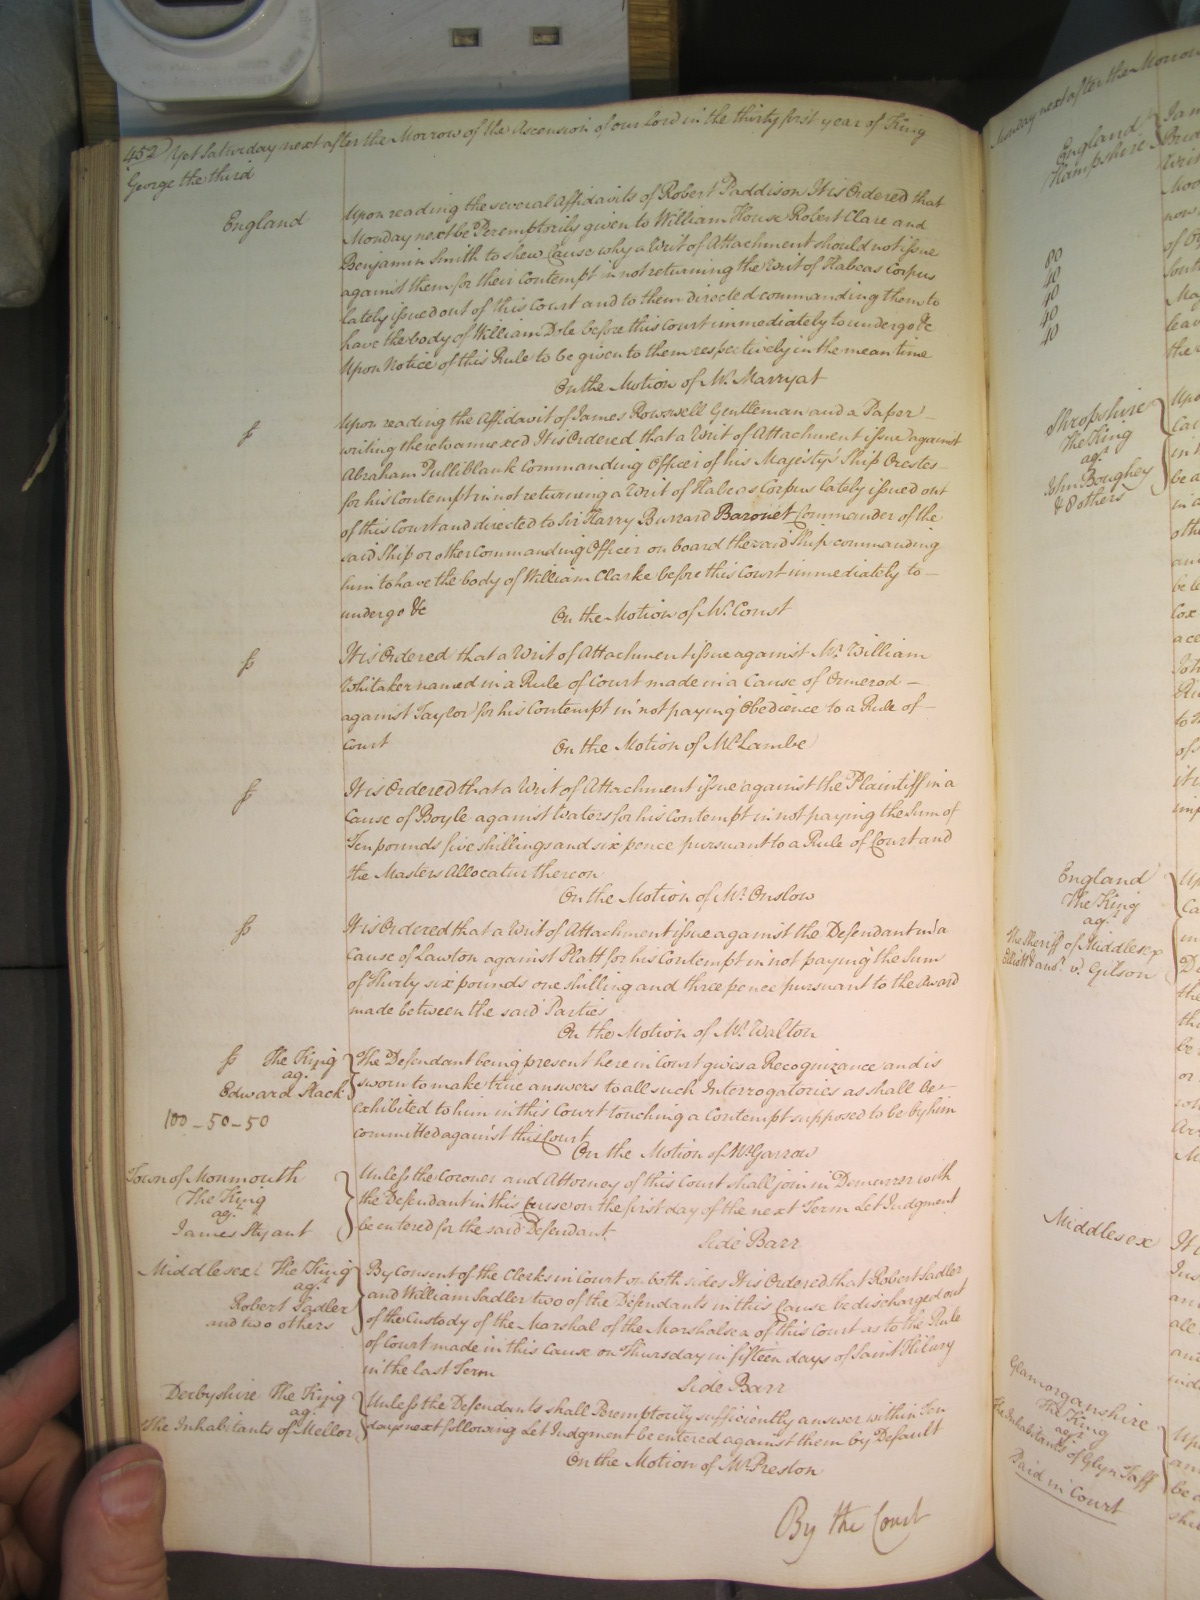 452 Yet Saturday next after the Morrow of the Ascension of our Lord in the thirty first year of King
George the third
England
Upon reading the several Affidavits of Robert Paddison It is Ordered that
Monday next be Peremptorily given to William House Robert Clare and
Benjamin Smith to shew Cause why a Writ of Attachment should not issue
against them for their Contempt in not returning the Writ of Habeas Corpus
lately issued out of this Court and to them directed commanding them to
have the body of William Dole before this Court immediately to undergo &c
Upon Notice of this Rule to be given to them respectively in the mean time
On the Motion of Mr. Marryat
fs
Upon reading the Affidavit of James Rowswell Gentleman and a Paper
writing thereto annexed It is Ordered that a Writ of Attachment issue against
Abraham Pulliblank Commanding Officer of his Majesty's Ship Orestes
for his Contempt in not returning a Writ of Habeas Corpus lately issued out
of this Court and directed to Sir Harry Burrard Baronet Commander of the
said Ship or other Commanding Officer on board the said Ship commanding
him to have the body of William Clarke before this Court immediately to
undergo &c
On the Motion of Mr. Const
fs
It is Ordered that a Writ of Attachment issue against Mr. William
Whitaker named in a Rule of Court made in a Cause of Ormerod
against Taylor for his Contempt in not paying Obedience to a Rule of
Court
On the Motion of Mr. Lambe
fs
It is Ordered that a Writ of Attachment issue against the Plaintiff in a
Cause of Boyle against Waters for his Contempt in not paying the Sum of
Ten pounds five shillings and six pence pursuant to a Rule of Court and
the Masters Allocatur thereon
On the Motion of Mr. Onslow
fs
It is Ordered that a Writ of Attachment issue against the Defendant in a
Cause of Lawton against Platt for his Contempt in not paying the Sum
of Thirty six pounds one shilling and three pence pursuant to the Award
made between the said Parties
On the Motion of Mr. Walton
fs The King
agt.
Edward Slack
100 - 50 - 50
The Defendant being present here in Court gives a Recognizance and is
sworn to make true answers to all such Interrogatories as shall be
exhibited to him in this Court touching a Contempt supposed to be by him
committed against this Court
On the Motion of Mr. Garrow
Town of Monmouth
The King
agt.
James
Unless the Coroner and Attorney of this Court shall join in Demurrer with
the Defendant in this Cause on the first day of the next Term Let Judgment
be entered for the said Defendant
Side Barr
Middlesex The King
agt.
Robert Sadler
and two others
By Consent of the Clerks in Court on both sides It is Ordered that Robert Sadler
and William Sadler two of the Defendants in this Cause be discharged out
of the Custody of the Marshal of the Marshalsea of this Court as to the Rule
of Court made in this Cause on Thursday in fifteen days of Saint Hilary
in the last Term
Side Barr
Derbyshire The King
agt.
The Inhabitants of Mellor
Unless the Defendants shall Peremptorily sufficiently answer within Ten
days next following Let Judgment be entered against them by Default
On the Motion of Mr. Preston
By the Court
Monday next after the Morrow
England
Hampshire
80
40
40
40
40
Shropshire
The King
agt.
John Boughey
& 8 others
England
The King
agt.
The Sheriff of Middlesex
Elliott & anor. v. Gilson
Middlesex
Glamorganshire
The King
agt.
The Inhabitants of Glyn Taff
Paid in Court